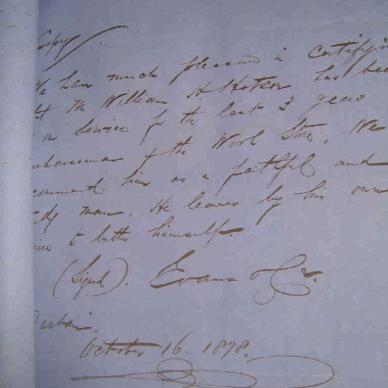 Copy
We have much pleasure in certifying
Mr William H Hotson has been
in our service for the last 3 years
warehouseman of the Wool Store. We
commend him as a faithful and
man. He leaves by his own
to better himself.
(Signed). Evans & Co.
Durban.
October 16. 1878.